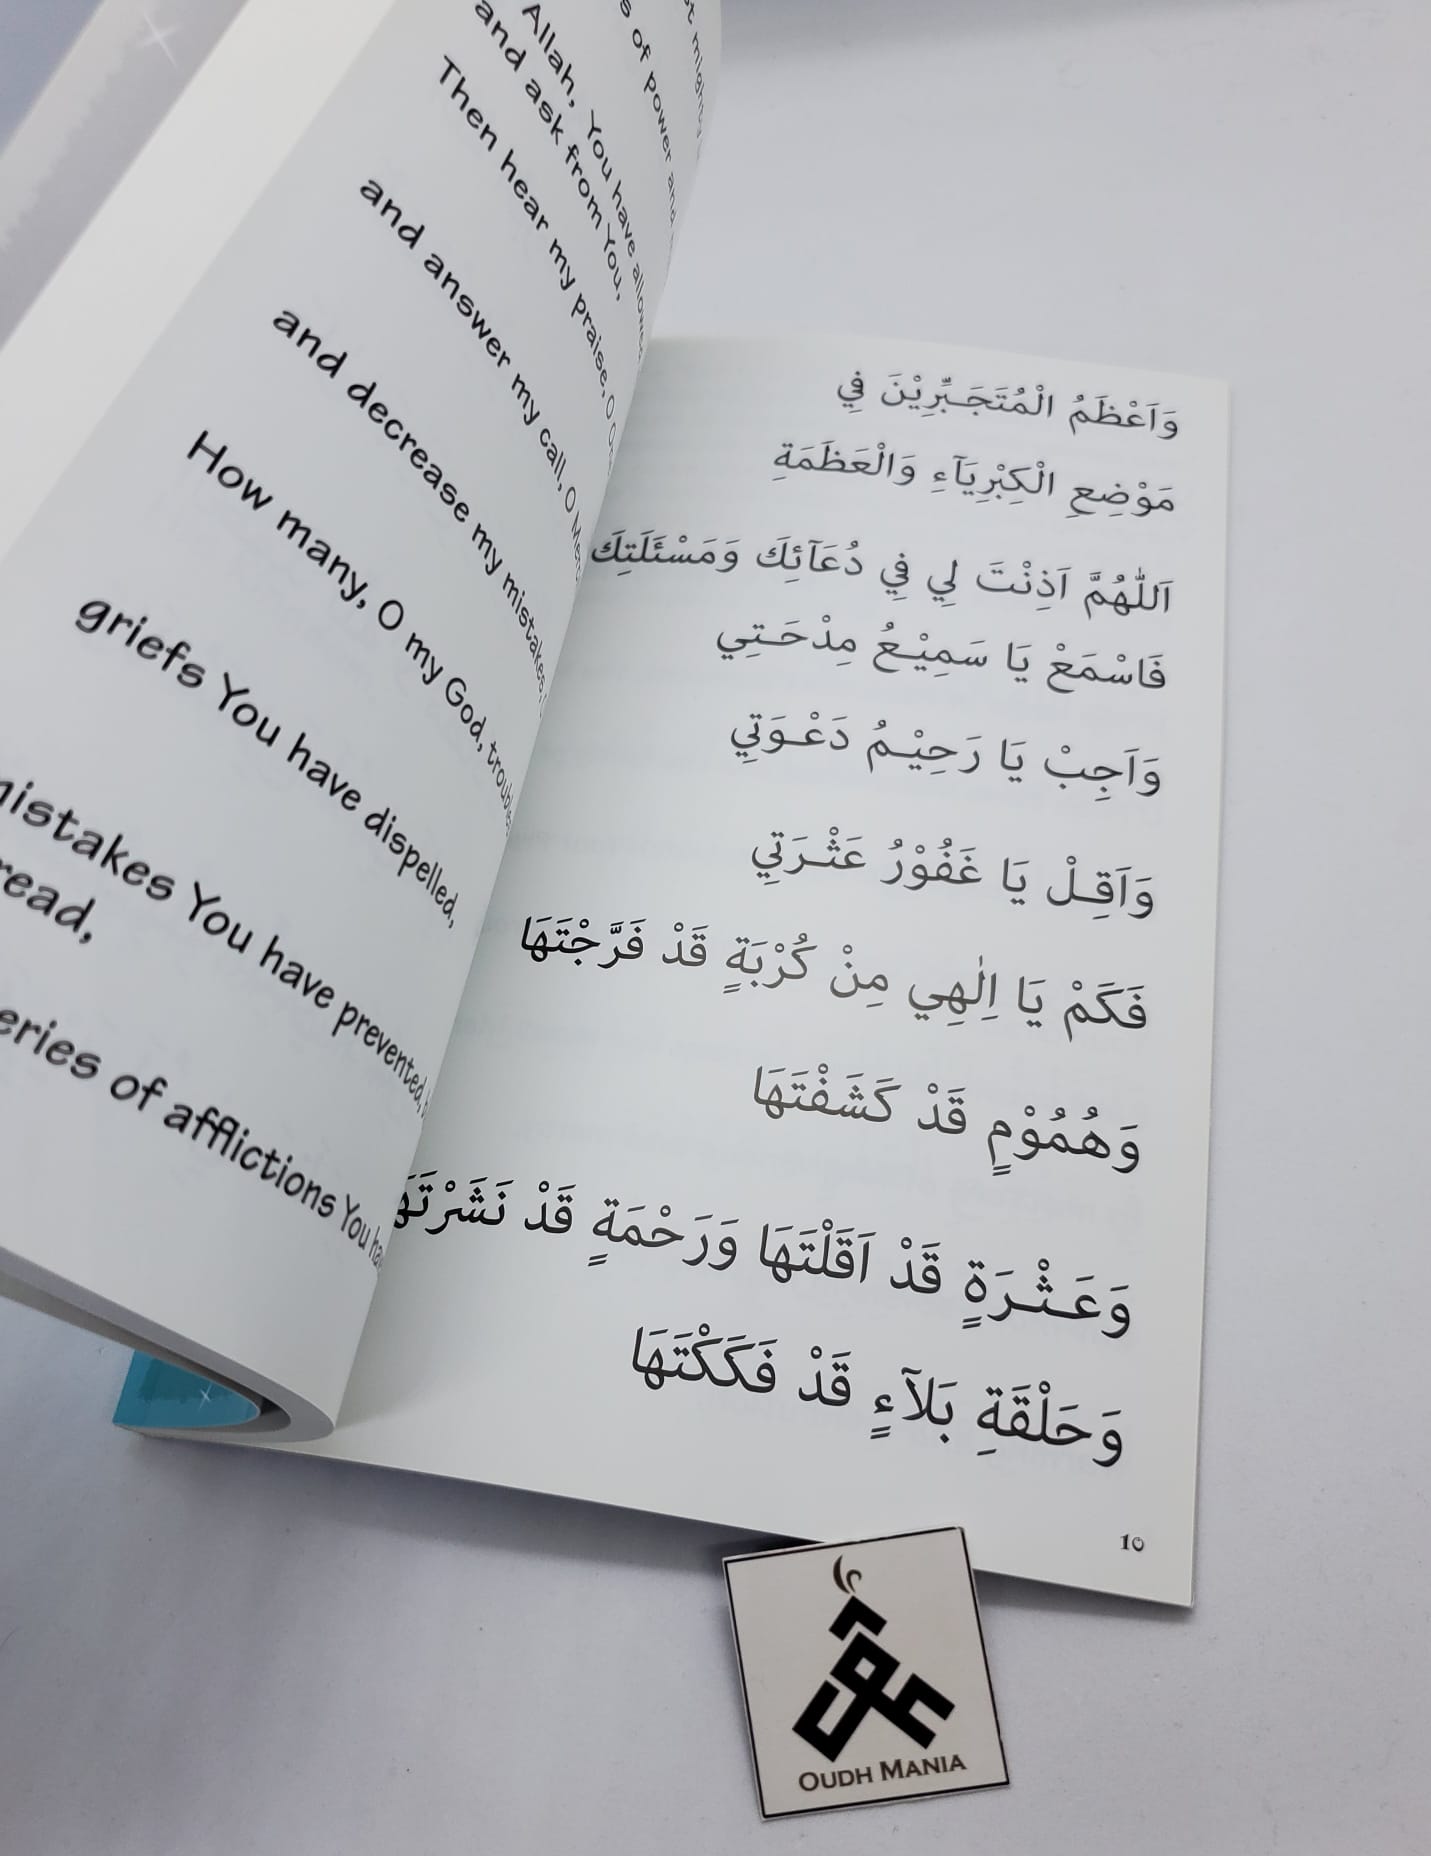 Allah, You have
and ask from You,
Then hear my praise, O
and answer my call, O
and decrease my mistakes,
How many, O my God,
griefs You have dispelled,
You have prevented,
of afflictions You
وَاَعْظَمُ الْمُتَجَبِّرِيْنَ فِي
مَوْضِعِ الْكِبْرِيَآءِ وَالْعَظَمَةِ
اَللّٰهُمَّ اَذِنْتَ لِي فِي دُعَآئِكَ وَمَسْئَلَتِكَ
فَاسْمَعْ يَا سَمِيْعُ مِدْحَتِي
وَاَجِبْ يَا رَحِيْمُ دَعْوَتِي
وَاَقِلْ يَا غَفُوْرُ عَثْرَتِي
فَكَمْ يَا اِلٰهِي مِنْ كُرْبَةٍ قَدْ فَرَّجْتَهَا
وَهُمُوْمٍ قَدْ كَشَفْتَهَا
وَعَثْرَةٍ قَدْ اَقَلْتَهَا وَرَحْمَةٍ قَدْ نَشَرْتَهَا
وَحَلْقَةِ بَلَآءٍ قَدْ فَكَكْتَهَا
OUDH MANIA